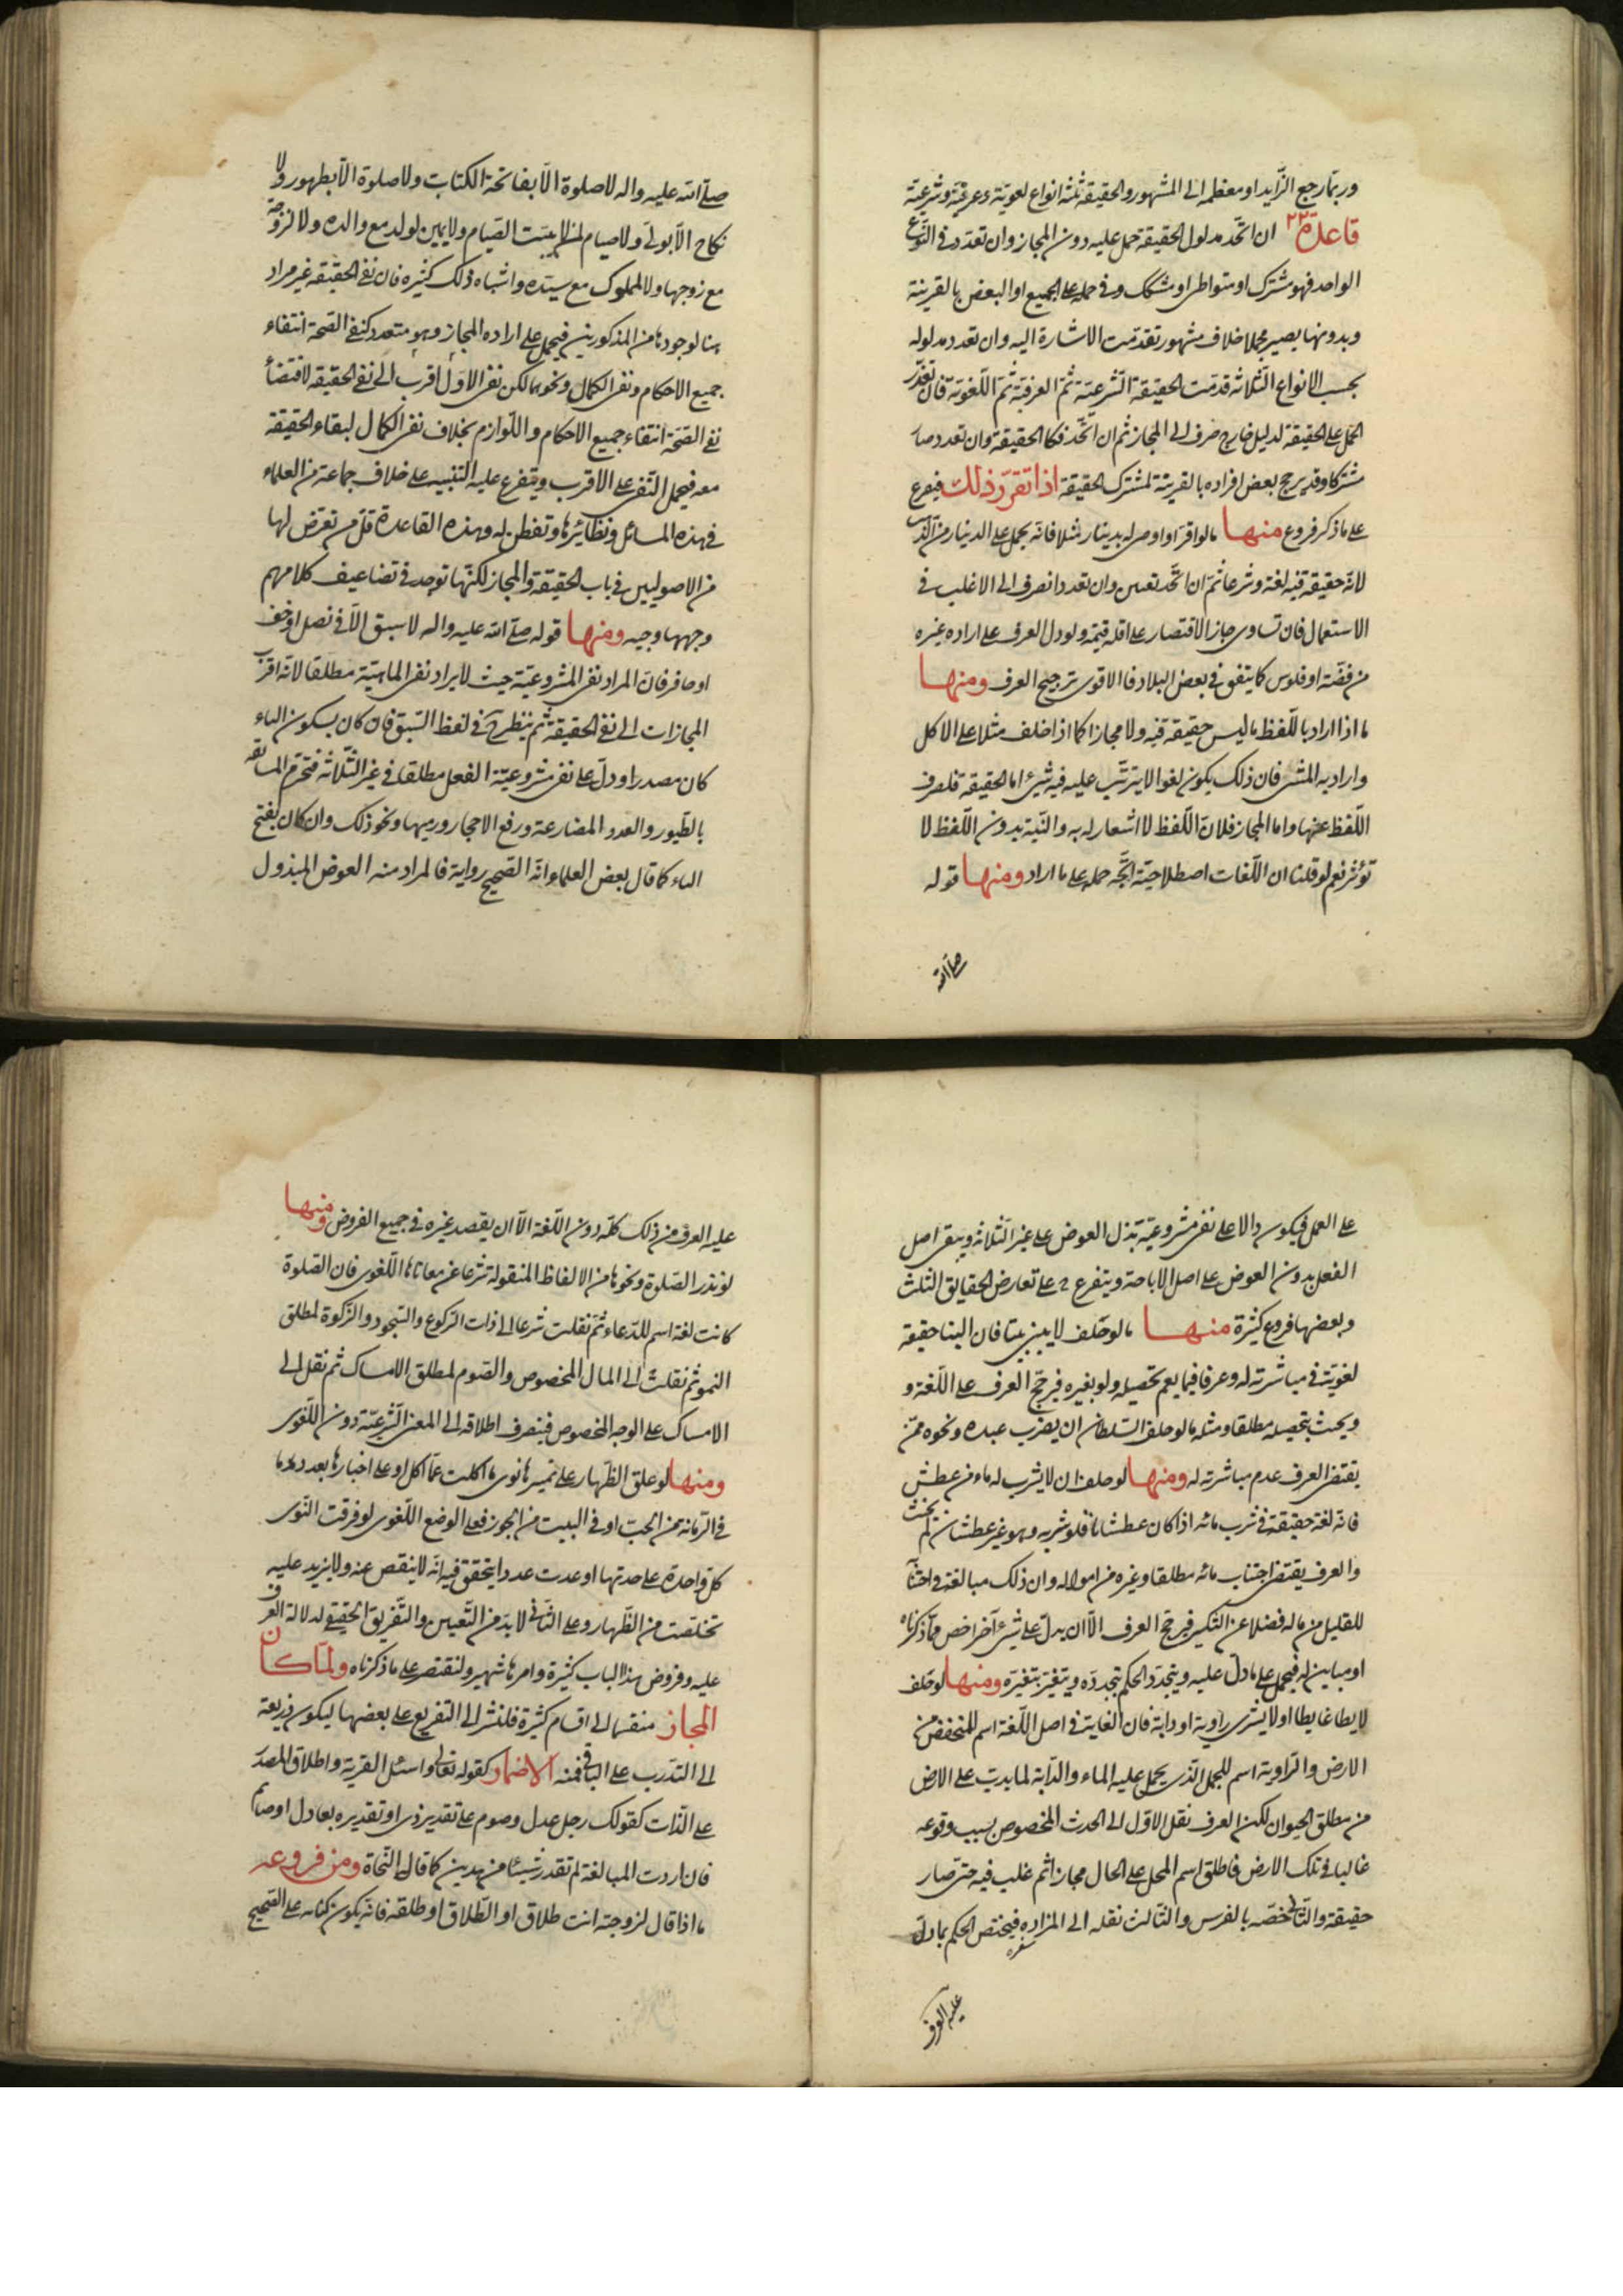 وربما رجع الزايد او معظمه الى المشهور والحقيقة ثلثة انواع لغوية وعرفية وشرعية
قاعدة ٢٢ ان اتحد مدلول الحقيقة حمل عليه دون المجاز وان تعدد فى النوع
الواحد فهو مشترك او متواطى او مشكك وفى حمله على الجميع او البعض بالقرينة
وبدونها يصير مجملا خلاف مشهور تقدمت الاشارة اليه وان تعدد مدلوله
بحسب الانواع الثلاثه قدمت الحقيقة الشرعية ثم العرفية ثم اللغوية فان تعذر
الحمل على الحقيقة لدليل خارج صرف الى المجاز ثم ان اتحد فكا الحقيقة وان تعدد صار
مشتركا وقد يرجح بعض افراده بالقرينة لمشترك الحقيقة اذا تقرر ذلك فيفرع
على ما ذكر فروع منها ما لو اقر او اوصى له بدينار مثلا فانه يحمل على الدينار من الذهب
لانه حقيقة فيه لغة وشرعا ثم ان اتحد تعين وان تعدد انصرف الى الاغلب فى
الاستعمال فان تساوى جاز الاقتصار على اقله قيمة ولو دل العرف على اراده غيره
من فضة او فلوس كما يتفق فى بعض البلاد فالاقوى ترجيح العرف ومنها
ما اذا اراد باللفظ ما ليس حقيقة فيه ولا مجازا كما اذا حلف مثلا على الاكل
واراد به المشى فان ذلك يكون لغوا لا يترتب عليه فيه شيئ اما الحقيقة فلصرف
اللفظ عنها واما المجاز فلان اللفظ لا اشعار له به والنية بدون اللفظ لا
تؤثر نعم لو قلنا ان اللغات اصطلاحية اتجه حمله على ما اراد ومنها قوله
صلى الله
صلى الله عليه واله لا صلوة الا بفاتحة الكتاب ولا صلوة الا بطهور ولا
نكاح الا بولى ولا صيام لمن لا يبيت الصيام ولا يمين لولد مع والده ولا لزوجة
مع زوجها ولا لمملوك مع سيده واشباه ذلك كثيره فان نفى الحقيقة غير مراد
هنا لوجودها من المذكورين فيحمل على اراده المجاز وهو متعدد كنفى الصحة انتفاء
جميع الاحكام ونفى الكمال ونحوهما لكن نفى الاول اقرب الى نفى الحقيقه لاقتضاء
نفى الصحة انتفاء جميع الاحكام واللوازم بخلاف نفى الكمال لبقاء الحقيقة
معه فيحمل النفى على الاقرب ويتفرع عليه التنبيه على خلاف جماعة من العلماء
فى هذه المسائل ونظائرها وتفطن له وهذه القاعدة قل من تعرض لها
من الاصوليين فى باب الحقيقة والمجاز لكنها توجد فى تضاعيف كلامهم
وجهها وجيه ومنها قوله صلى الله عليه واله لا سبق الا فى نصل او خف
او حافر فان المراد نفى المشروعية حيث لا يراد نفى الماهية مطلقا لانه اقرب
المجازات الى نفى الحقيقة ثم ينظر ح فى لفظ السبق فان كان بسكون الباء
كان مصدرا ودل على نفى مشروعية الفعل مطلقا فى غير الثلاثة فتحرم المسابقه
بالطيور والعدو المصارعة ورفع الاحجار ورميها ونحو ذلك وان كان بفتح
الباء كما قال بعض العلماء انه الصحيح رواية فالمراد منه العوض المبذول
على العمل فيكون دالا على نفى مشروعية بذل العوض على غير الثلاثه ويبقى اصل
الفعل بدون العوض على اصل الاباحة ويتفرع ح على تعارض الحقايق الثلث
وبعضها فروع كثيرة منها ما لو حلف لا يبنى بيتا فان البنا حقيقة
لغوية فى مباشرته له وعرفا فيما يعم تحصيله ولو بغيره فيرجح العرف على اللغة و
ويحنث بتحصيله مطلقا ومثله ما لو حلف السلطان ان يضرب عبده ونحوه ممن
يقتضى العرف عدم مباشرته له ومنها لو حلف ان لا يشرب له ماء من عطش
فانه لغة حقيقة فى شرب مائه اذا كان عطشانا فلو شربه وهو غير عطشان لم يحنث
والعرف يقتضى اجتناب مائه مطلقا وغيره من امواله وان ذلك مبالغة فى اجتناب
للقليل من ماله فضلا عن الكثير فيرجح العرف الا ان يدل على شيئ آخر اخص مما ذكرناه
او مباين له فيحمل على ما دل عليه ويتجدد الحكم بتجدده ويتغير بتغيره ومنها لو حلف
لا يطا غايطا او لا يشترى راوية او دابة فان الغايت فى اصل اللغة اسم للمنخفض من
الارض والراوية اسم للجمل الذى يحمل عليه الماء والدابة لما يدب على الارض
من مطلق الحيوان لكن العرف نقل الاول الى الحدث المخصوص بسبب وقوعه
غالبا فى تلك الارض فاطلق اسم المحل على الحال مجازا ثم غلب فيه حتى صار
حقيقة والثانى خصه بالفرس والثالث نقله الى المزاده فيختص الحكم بما دل
عليه العرف
عليه العرف من ذلك كله دون اللغة الا ان يقصد غيره فى جميع الفروض ومنها
لو نذر الصلوة ونحوها من الالفاظ المنقولة شرعا عن معاناها اللغوى فان الصلوة
كانت لغة اسم للدعاء ثم نقلت شرعا الى ذات الركوع والسجود والزكوة لمطلق
النمو ثم نقلت الى المال المخصوص والصوم لمطلق الامساك ثم نقل الى
الامساك على الوجه المخصوص فينصرف اطلاقه الى المعنى الشرعية دون اللغوى
ومنها لو علق الظهار على تميزها نوى ما اكلت عما اكل او على اخبارها بعدد ما
فى الرمانة من الحب او فى البيت من الجوز فعلى الوضع اللغوى لو فرقت النوى
كل واحدة على حدتها او عدت عددا يتحقق فيه انه لا ينقص عنه ولا يزيد عليه
تخلصت من الظهار وعلى الثانى لا بد من التعيين والتفريق الحقيقى لدلالة العرف
عليه وفروض هذا الباب كثيرة وامرها شهير ولنقتصر على ما ذكرناه ولما كان
المجاز منقسما الى اقسام كثيرة فلنشر الى التفريع على بعضها ليكون ذريعة
الى التدرب على الباقى فمنه الاضمار كقوله تعالى واسئل القرية واطلاق المصدر
على الذات كقولك رجل عدل وصوم على تقدير ذى او تقديره بعادل او صائم
فان اردت المبالغة لم تقدر شيئا من هذين كما قال النحاة ومن فروعه
ما اذا قال لزوجته انت طلاق او الطلاق او طلقة فانه يكون كناية على الصحيح